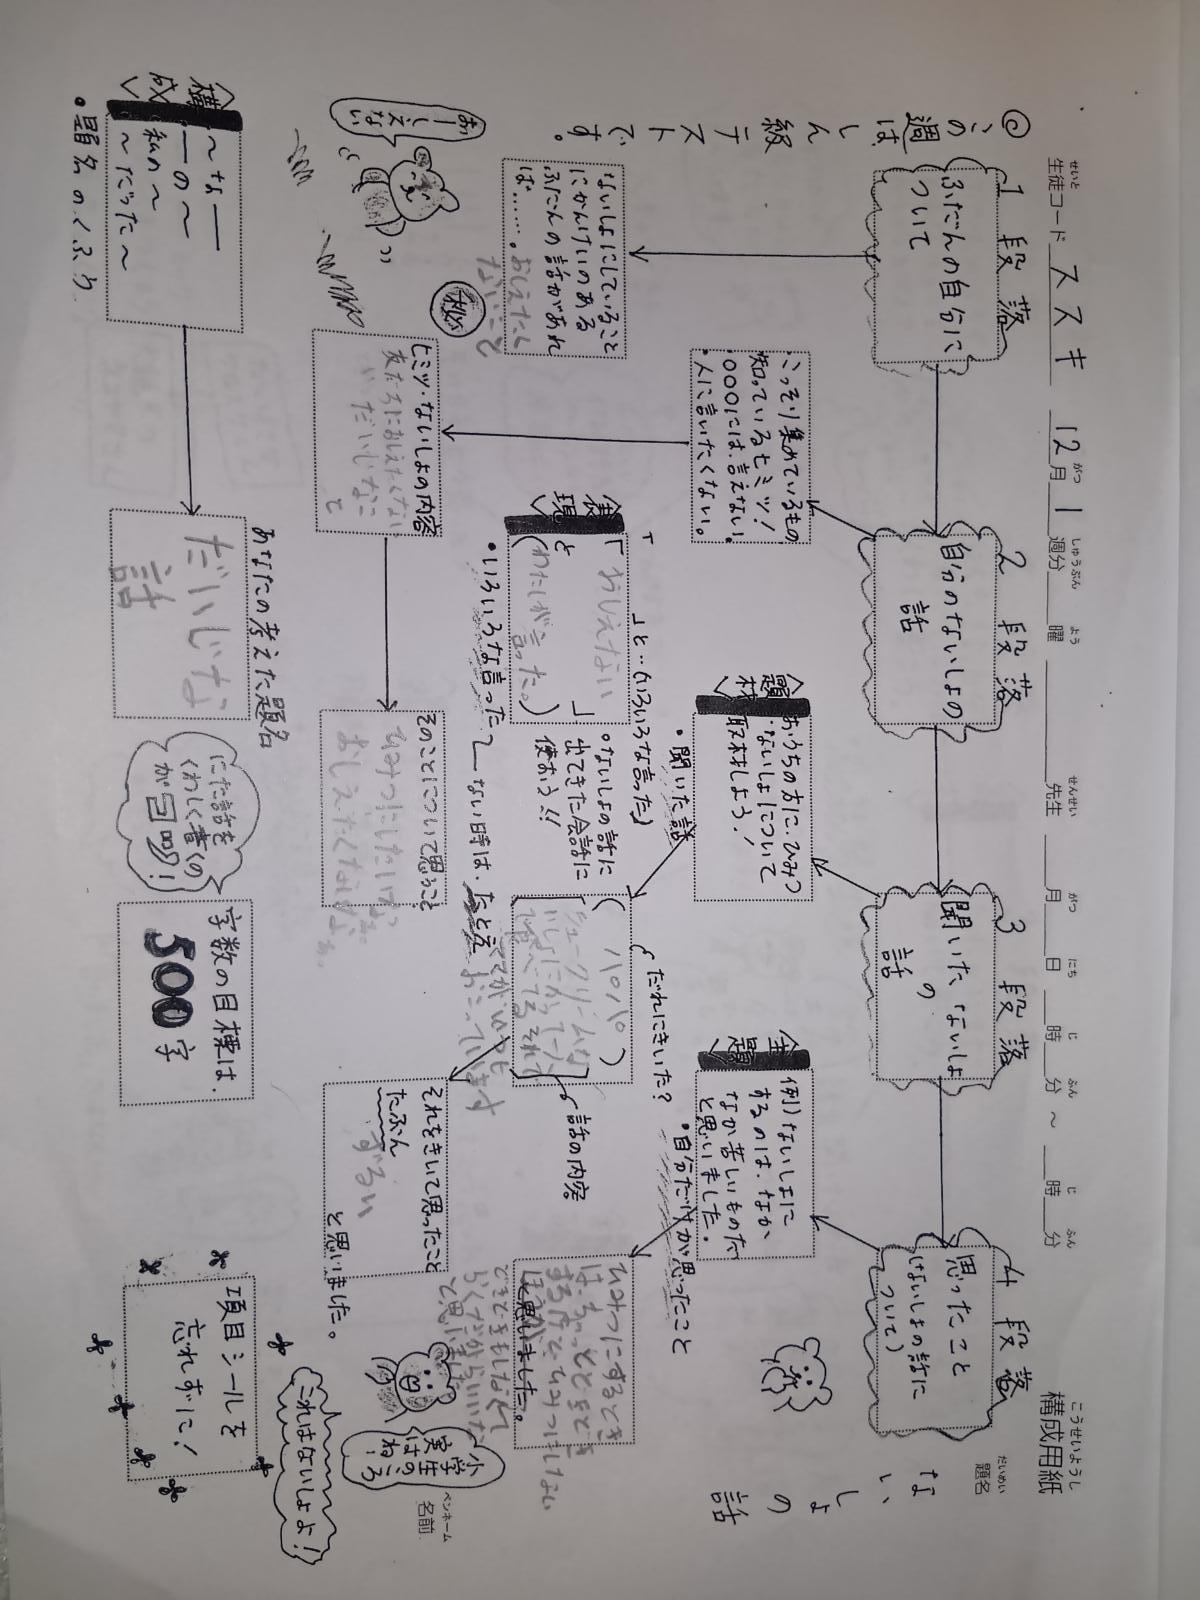 構成用紙
こうせいようし
生徒コード ススキ 12月 1週分 曜 先生 月 日 時 分 ～ 時 分
せいと がつ しゅうぶん よう せんせい がつ にち じ ふん じ ふん
題名
だいめい
ないしょの話
名前
ペンネーム
この週は
しん級
テスト
です。
1段落
ふだんの自分に
ついて
2段落
自分のないしょの
話
3段落
聞いたないしょ
の
話
4段落
思ったこと
(ないしょの話に
ついて)
ないしょにしていること
にかんけいのある
ふだんの話があれ
ば……。おしえたく
ないこと
こっそり集めているもの
知っているヒミツ!
○○○には、言えない。
・人に言いたくない。
〈題材〉
おうちの方に、ひみつ
・ないしょについて
取材しよう!
・聞いた話
〈主題〉
例)ないしょに
するのは、なか
なか苦しいものだ
と思いました。
・自分だけが思ったこと
おー
しえない
秘
ヒミツ・ないしょの内容
友だちにおしえたくない
だいじなこ
と
〈表現〉
「 」と…(いろいろな言った)
「おしえない」
と
(わたしが言った。)
・ないしょの話に
出てきた会話に
使おう!!
・いろいろな言った
ない時は、たとえ
だれにきいた?
(パパ)
シュークリームな
いしょにかって一人
で食べてるそれで
ママがいつも
おこっています
話の内容
ひみつにするとき
は、ちょっとどきどき
するけど、ひみつにしない
ほうが
と思いました。
どきどきしなくて
らくだからいいな
と思いました
そのことについて思うこと
ひみつにしたいなぁ。
おしえたくないなぁ。
それをきいて思ったこと
たぶん
ずるい
と思いました。
小学生のころ
実はね!
これはないしょよ!
〈構成〉
～な――
――の～
私の～
～だった～
・題名のくふう
あなたの考えた題名
だいじな
話
にた話を
くわしく書くの
が回四!
字数の目標は、
500字
項目シールを
忘れずに!